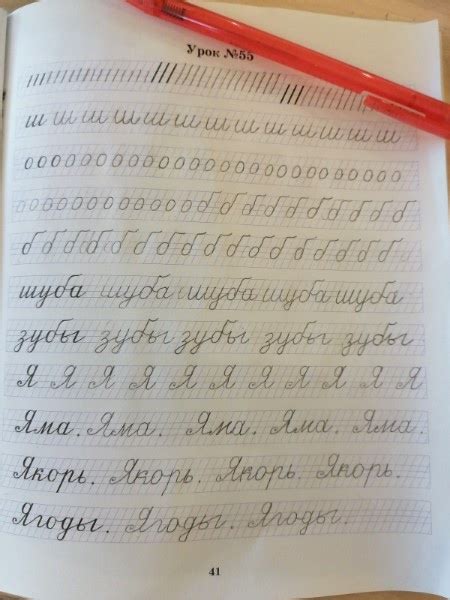 Урок №55
ш ш ш ш ш ш ш ш ш ш ш ш ш
о о о о о о о о о о о о о о о о о о о о о о о о о
о о о о о о о о о о о о о б б б б б б б б
б б б б б б б б б б б б б б б б
шуба шуба шуба шуба шуба
зубы зубы зубы зубы зубы
Я Я Я Я Я Я Я Я Я Я Я
Яма. Яма. Яма. Яма. Яма.
Якорь. Якорь. Якорь. Якорь.
Ягоды. Ягоды. Ягоды.
41